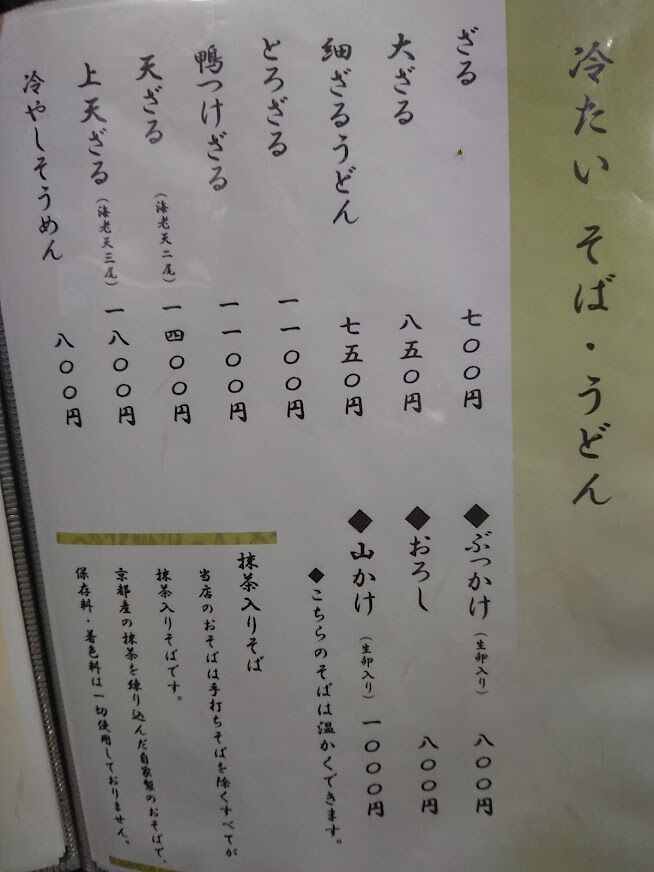 冷たい そば・うどん
ざる 七〇〇円
大ざる 八五〇円
細ざるうどん 七五〇円
とろざる 一一〇〇円
鴨つけざる 一一〇〇円
天ざる (海老天二尾) 一四〇〇円
上天ざる (海老天三尾) 一八〇〇円
冷やしそうめん 八〇〇円
◆ぶっかけ (生卵入り) 八〇〇円
◆おろし 八〇〇円
◆山かけ (生卵入り) 一〇〇〇円
◆こちらのそばは温かくできます。
抹茶入りそば
当店のおそばは手打ちそばを除くすべてが
抹茶入りそばです。
京都産の抹茶を練り込んだ自家製のおそばで、
保存料・着色料は一切使用しておりません。